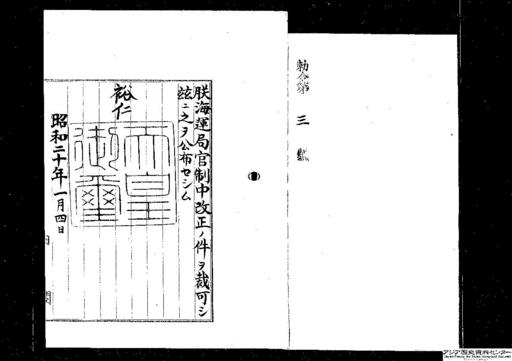 勅令第三號
朕海運局官制中改正ノ件ヲ裁可シ
玆ニ之ヲ公布セシム
裕仁
天皇御璽
昭和二十年一月四日
アジア歴史資料センター